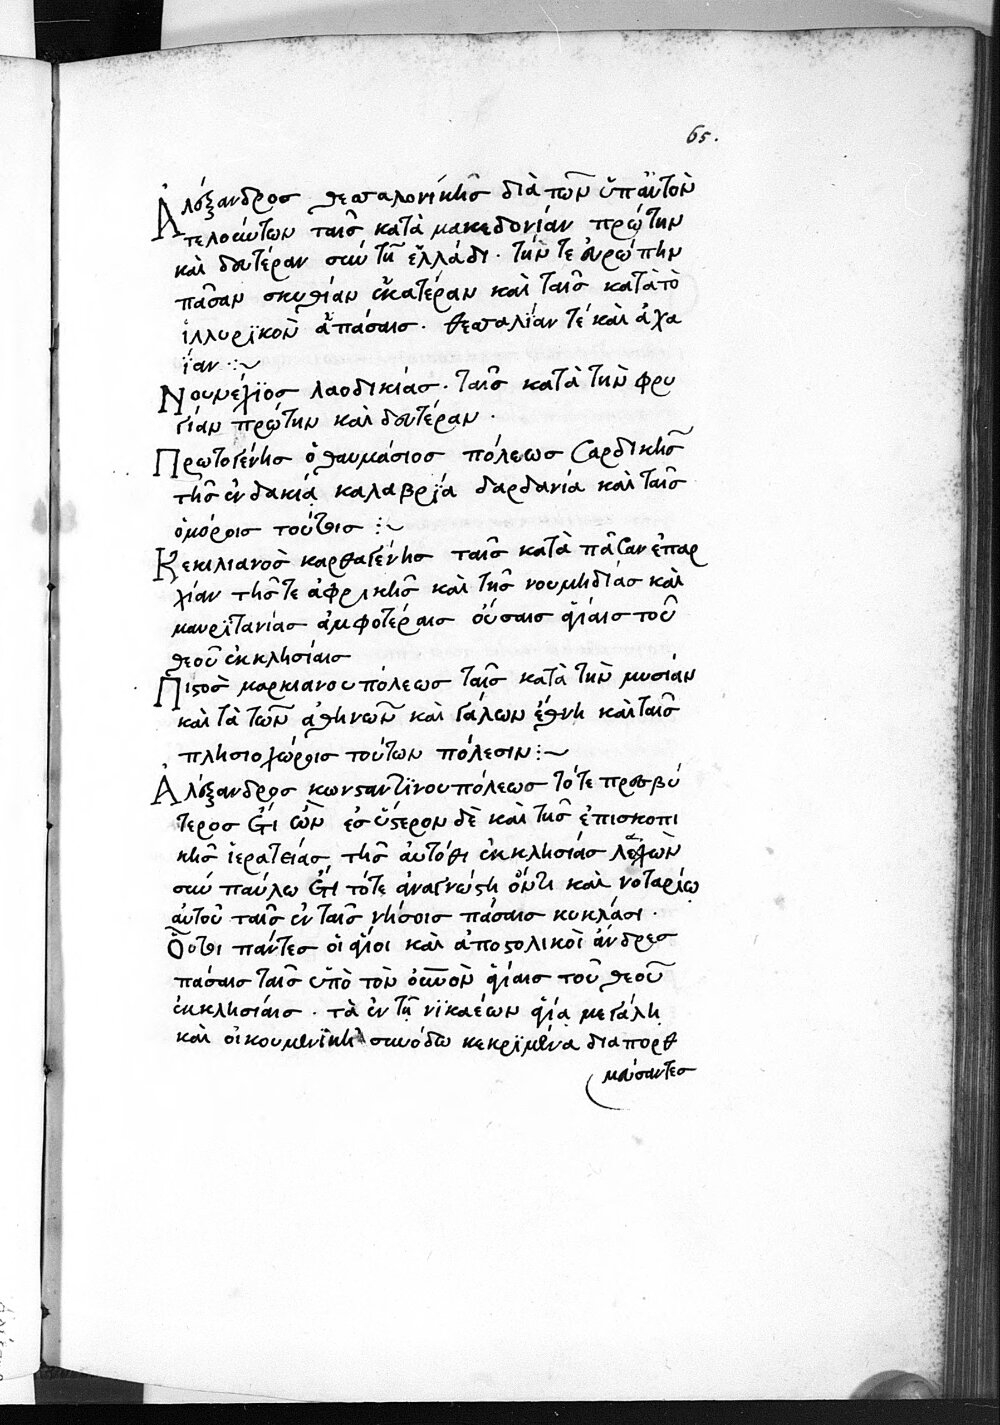 65.
Ἀλέξανδρος θεσσαλονίκης διὰ τῶν ὑπ' αὐτὸν
τελούντων ταῖς κατὰ μακεδονίαν πρώτην
καὶ δευτέραν σὺν τῇ ἑλλάδι· τήν τε εὐρώπην
πᾶσαν σκυθίαν ἑκατέραν καὶ ταῖς κατὰ τὸ
ἰλλυρικὸν ἁπάσαις· θεσσαλίαν τέ καὶ ἀχα
ΐαν :~
Νουνέχϊος λαοδικίας· ταῖς κατὰ τὴν φρυ
γίαν πρώτην καὶ δευτέραν·
Πρωτογένης ὁ θαυμάσιος πόλεως Σαρδικῆς
τῆς ἐν δακίᾳ καλαβρΐα δαρδανία καὶ ταῖς
ὁμόροις τούτοις :~
Κεκιλιανὸς καρθαγένης ταῖς κατὰ πᾶσαν ἐπαρ
χίαν τῆς τε ἀφρικῆς καὶ τῆς νουμηδίας καὶ
μαυρϊτανίας ἀμφοτέραις οὔσαις ἁγίαις τοῦ
θεοῦ ἐκκλησίαις
Πιστὸς μαρκιανουπόλεως ταῖς κατὰ τὴν μυσίαν
καὶ τὰ τῶν ἀθηνῶν καὶ γάλων ἔθνη καὶ ταῖς
πλησιοχώροις τούτων πόλεσιν :~
Ἀλέξανδρος κωνσταντϊνουπόλεως τότε πρεσβύ
τερος ἔτι ὢν ἐσύστερον δὲ καὶ τῆς ἐπισκοπι
κῆς ἱερατείας τῆς αὐτόθι ἐκκλησίας λαχὼν
σὺν παύλω ἔτι τότε ἀναγνώστη ὄντι καὶ νοταρίῳ
αὐτοῦ ταῖς ἐν ταῖς νήσοις πάσαις κυκλάσι·
Οὗτοι πάντες οἱ ἅγιοι καὶ ἀποστολικοὶ ἄνδρες
πάσαις ταῖς ὑπὸ τὸν οὐνὸν ἁγίαις τοῦ θεοῦ
ἐκκλησίαις· τὰ ἐν τῇ νϊκαέων ἁγίᾳ μεγάλῃ
καὶ οἰκουμενϊκῆ συνόδω κεκρϊμένα διαπορθ
μεύσαντες